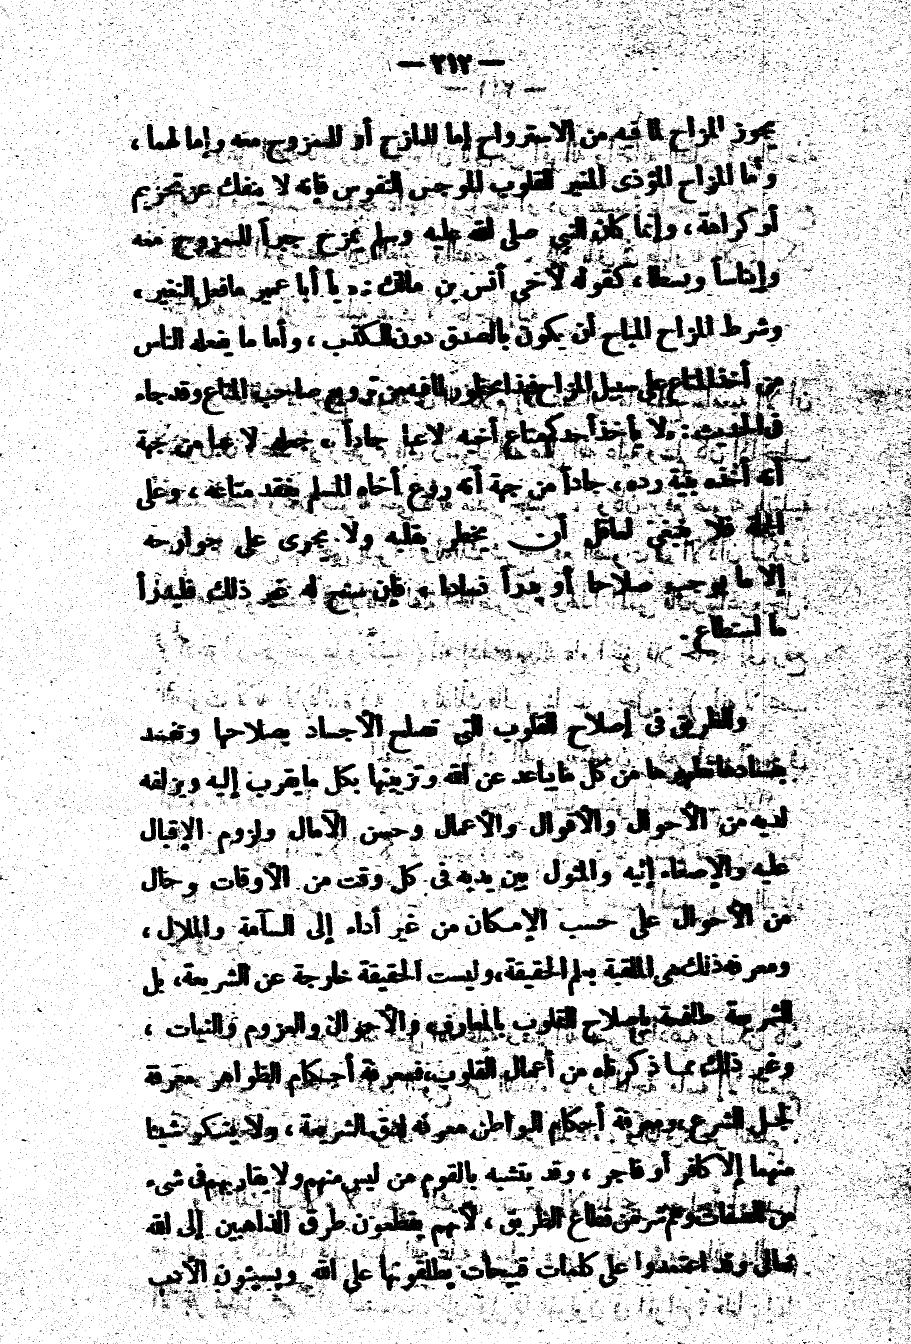 — ٢١٢ —
يجوز المزاح لما فيه من الاسترواح إما للمازح أو للممزوح معه وإما لهما ،
وأما المزاح المؤذى المغير القلوب الموجس النفوس فإنه لا ينفك عن تحريم
أو كراهة ، وإنما كان النبي صلى الله عليه وسلم يمزح جبراً للممزوح معه
وإيناساً وبسطا ، كقوله لأخى أنس بن مالك : « يا أبا عمير مافعل النغير ،
وشرط المزاح المباح أن يكون بالصدق دون الكذب ، وأما ما يفعله الناس
من أخذ المتاع على سبيل المزاح فهذا محظور لما فيه من ترويع صاحب المتاع وقد جاء
فى الحديث : « لا يأخذ أحدكم متاع أخيه لاعبا جاداً » جعله لاعبا من جهة
أنه أخذه بنية رده ، جاداً من جهة أنه روع أخاه المسلم بفقد متاعه ، وعلى
الجملة فلا ينبغى لعاقل أن يخطر بقلبه ولا يجرى على جوارحه
إلا ما يوجب صلاحا أو يدرأ فسادا ، فإن سنح له غير ذلك فليدرأ
ما استطاع .
والطريق فى إصلاح القلوب التى تصلح الأجساد بصلاحها وتفسد
بفسادها تطهيرها من كل ما يباعد عن الله وتزيينها بكل ما يقرب إليه ويزلفه
لديه من الأحوال والأقوال والأعمال وحسن الآمال ولزوم الإقبال
عليه والإصغاء إليه والمثول بين يديه فى كل وقت من الأوقات وحال
من الأحوال على حسب الإمكان من غير أداء إلى السآمة والملال ،
ومعرفة ذلك هى الملقبة بعلم الحقيقة، وليست الحقيقة خارجة عن الشريعة، بل
الشريعة طافحة بإصلاح القلوب بالمعارف والأحوال والعزوم والنيات ،
وغير ذلك مما ذكرناه من أعمال القلوب، فمعرفة أحكام الظواهر معرفة
لجل الشرع ، ومعرفة أحكام البواطن معرفة لدق الشريعة ، ولا ينكر شيئا
منهما إلا كافر أو فاجر ، وقد يتشبه بالقوم من ليس منهم ولا يقاربهم فى شىء
من الصفات وهم شر من قطاع الطريق ، لأنهم يقطعون طرق الذاهبين إلى الله
تعالى وقد اعتمدوا على كلمات قبيحات يطلقونها على الله ويسيئون الأدب